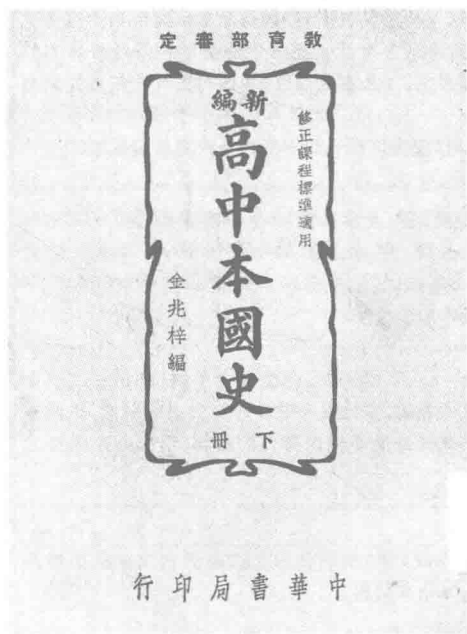 教育部審定
修正課程標準適用
新編
高中本國史
下冊
金兆梓編
中華書局印行